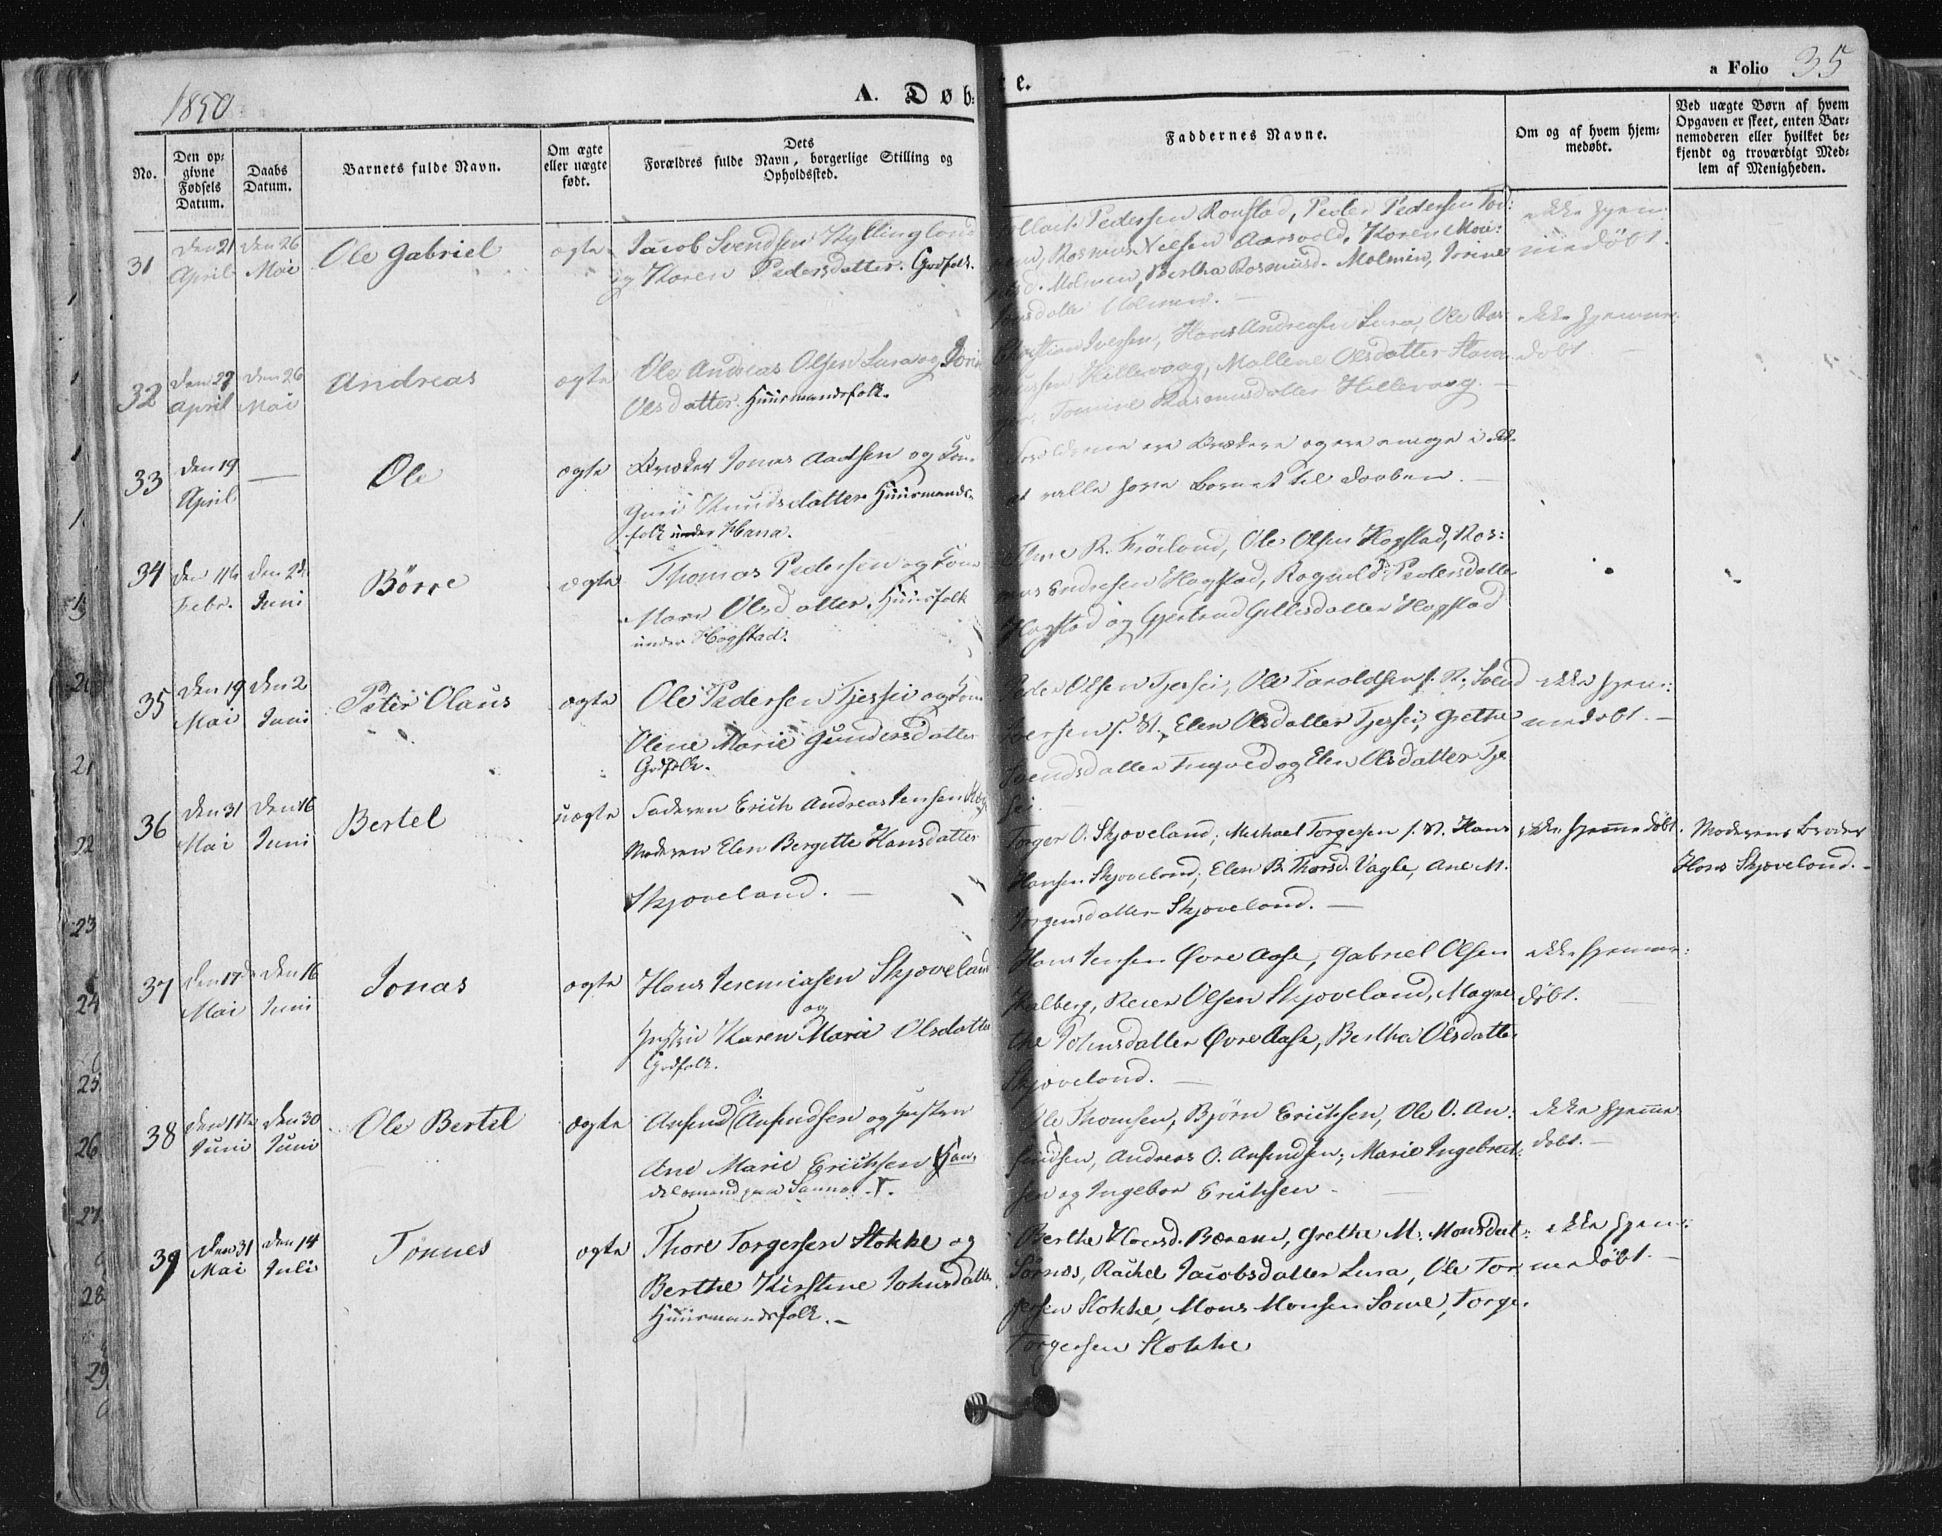 1850
A. Døbte.
a Folio 35
No.
Den op-
givne
Fødsels
Datum.
Daabs
Datum.
Barnets fulde Navn.
Om ægte
eller uægte
født.
Dets
Forældres fulde Navn, borgerlige Stilling og
Opholdssted.
Faddernes Navne.
Om og af hvem hjem-
medøbt.
Ved uægte Børn af hvem
Opgaven er skeet, enten Bar-
nemoderen eller hvilket be-
kjendt og troværdigt Med-
lem af Menigheden.
31
Den 21
April
Den 26
Mai
Ole Gabriel
ægte
Jacob Svendsen Kyllingland
og Karen Pedersdatter. Grdfolk.
Pedersen Ronstad, Peder Pedersen
Rasmus Nilsen Aarsvold, Karen
Molmen, Bertha Rasmusd. Molmen,
ikke hjem-
medøbt.
32
Den 27
April
Den 26
Mai
Andreas
ægte
Ole Andreas Olsen Lura og
Olsdatter. Huusmandsfolk.
Christian Iversen, Hans Andreasen Lura, Ole Ras-
Hillevaag, Mallene Olsdatter
Tomine Rasmusdatter Hillevaag.
ikke hjemme-
døbt
33
Den 19
April
Ole
ægte
Qvæker Jonas Aadsen og Kone
Guri Knudsdatter Huusmands-
folk under Hana.
ere Qvækere og
Barnet til Daaben.
34
Den 11te
Febr.
Den 2de
Juni
Börre
ægte
Thomas Pedersen og Kone
Mari Olsdatter. Huusfolk
under Hogstad.
R. Fröiland, Ole Olsen Hogstad, Ras-
mus Endresen Hogstad, Ragnild Pedersdatter
Hogstad og Gjertrud Gillesdatter Hogstad
35
Den 19
Mai
Den 2
Juni
Peter Olaus
ægte
Ole Pedersen Tjessei og Kone
Olene Marie Gundersdatter
Grdfolk.
Peder Olsen Tjessei, Ole Taroldsen s. St., Svend
Iversen s. St., Elen Olsdatter Tjessei, Grethe
Svendsdatter og Elen Olsdatter Tjes-
sei.
ikke hjem-
medøbt.
36
Den 31
Mai
Den 16
Juni
Bertel
uægte
Faderen Erich Andreas Jensen
Moderen Elen Bergitte Hansdatter
Skjæveland.
Torger O. Skjæveland, Michael Torgersen s. St. Hans
Hansen Skjæveland, Elen B. Thorsd. Vagle, Ane M.
Jørgensdatter Skjæveland.
ikke hjemmedøbt.
Moderens Broder
Hans Skjæveland.
37
Den 17de
Mai
Den 16
Juni
Jonas
ægte
Hans Jeremiasen Skjæveland
og
Hustru Karen Maria Olsdatter
Grdfolk.
Hans Jensen Øvre Aase, Gabriel Olsen
Malberg, Reier Olsen Skjæveland, Magre-
the Johnsdatter Øvre Aase, Bertha Olsdatter
Skjæveland.
ikke hjemme-
døbt.
38
Den 11te
Juni
Den 30
Juni
Ole Bertel
ægte
Ansend O. Ansendsen og Hustru
Ane Marie Erichsen Han-
delsmand paa Sannes.
Ole Thomsen, Bjørn Erichsen, Ole O. An-
sendsen, Andreas O. Ansendsen, Marie Ingebret-
sen og Ingebor Erichsen
ikke hjemme
døbt.
39
Den 31
Mai
Den 14
Juli
Tønnes
ægte
Thore Torgersen Stokke og
Berthe Kirstine Johnsdatter
Huusmandsfolk.
Berthe Hansd. Grethe M. Monsdat-
Sörnæs, Rachel Jacobsdatter Lura, Ole Tor-
gersen Stokke, Mons Monsen Some, Torger
Torgersen Stokke
ikke hjem-
medøbt.